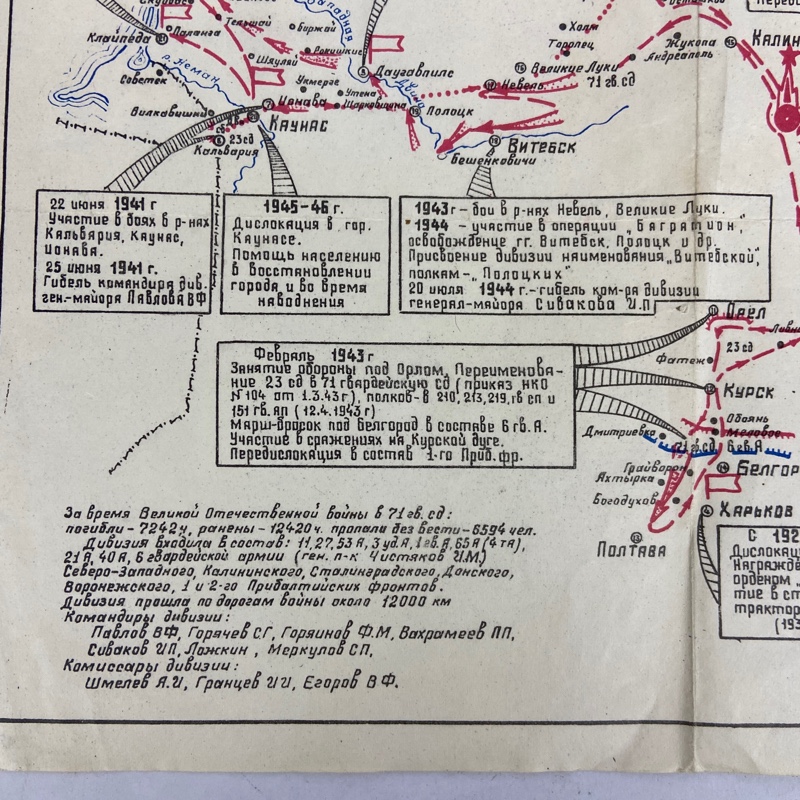 Клайпеда
Паланга
Тельшай
Биржай
Рокишкис
Шяуляй
Западная
Двина
Даугавпилс
Холм
Торопец
Великие Луки
Невель
71 гв. сд
Жукопа
Андреаполь
КАЛИН
Советск
р. Неман
Укмерге
Утена
Ионава
Шарковщина
Полоцк
Вилкавишки
КАУНАС
23 сд
Кальвария
ВИТЕБСК
Бешенковичи
22 июня 1941 г
Участие в боях в р-нах
Кальвария, Каунас,
Ионава.
25 июня 1941 г.
Гибель командира див.
ген.-майора Павлова ВФ
1945-46 г.
Дислокация в гор.
Каунасе.
Помощь населению
в восстановлении
города и во время
наводнения
1943 г - бои в р-нах Невель, Великие Луки.
1944 - участие в операции „Багратион",
освобождение гг. Витебск, Полоцк и др.
Присвоение дивизии наименования „Витебской",
полкам- „Полоцких"
20 июля 1944 г.-гибель ком-ра дивизии
генерал-майора Сивакова И.П
Февраль 1943 г
Занятие обороны под Орлом, Переименова-
ние 23 сд в 71 гвардейскую СД (приказ НКО
N 104 от 1.3.43 г), полков-в 210, 213, 219, гв сп и
151 гв. ап (12.4.1943 г)
Марш-бросок под Белгород в составе 6 гв. А.
Участие в сражениях на Курской дуге.
Передислокация в состав 1-го Приб. фр.
Орёл
Ливн
23 сд
Фатеж
КУРСК
Обоянь
Меловое
Дмитриевка
71 гв. сд 6 гв. А
Грайворон
БЕЛГОР
Ахтырка
Богодухов
ХАРЬКОВ
ПОЛТАВА
С 192
Дислокаци
Награжде
орденом „
тие в ст
трактор
(193
За время Великой Отечественной войны в 71 гв. сд:
погибли - 7242 ч, ранены - 12420 ч. пропали без вести - 6594 чел.
Дивизия входила в состав: 11, 27, 53 А, 3 уд А, 1 гв. А, 65 А (4 тА),
21 А, 40 А, 6 гвардейской армии (ген. п-к Чистяков И.М.)
Северо-Западного, Калининского, Сталинградского, Донского,
Воронежского, 1 и 2-го Прибалтийских фронтов.
Дивизия прошла по дорогам войны около 12000 км
Командиры дивизии:
Павлов ВФ, Горячев С.Г, Горяинов Ф.М, Вахрамеев ПП,
Сиваков ИП, Ложкин, Меркулов СП,
Комиссары дивизии:
Шмелев Я.И, Гранцев И И, Егоров В Ф.